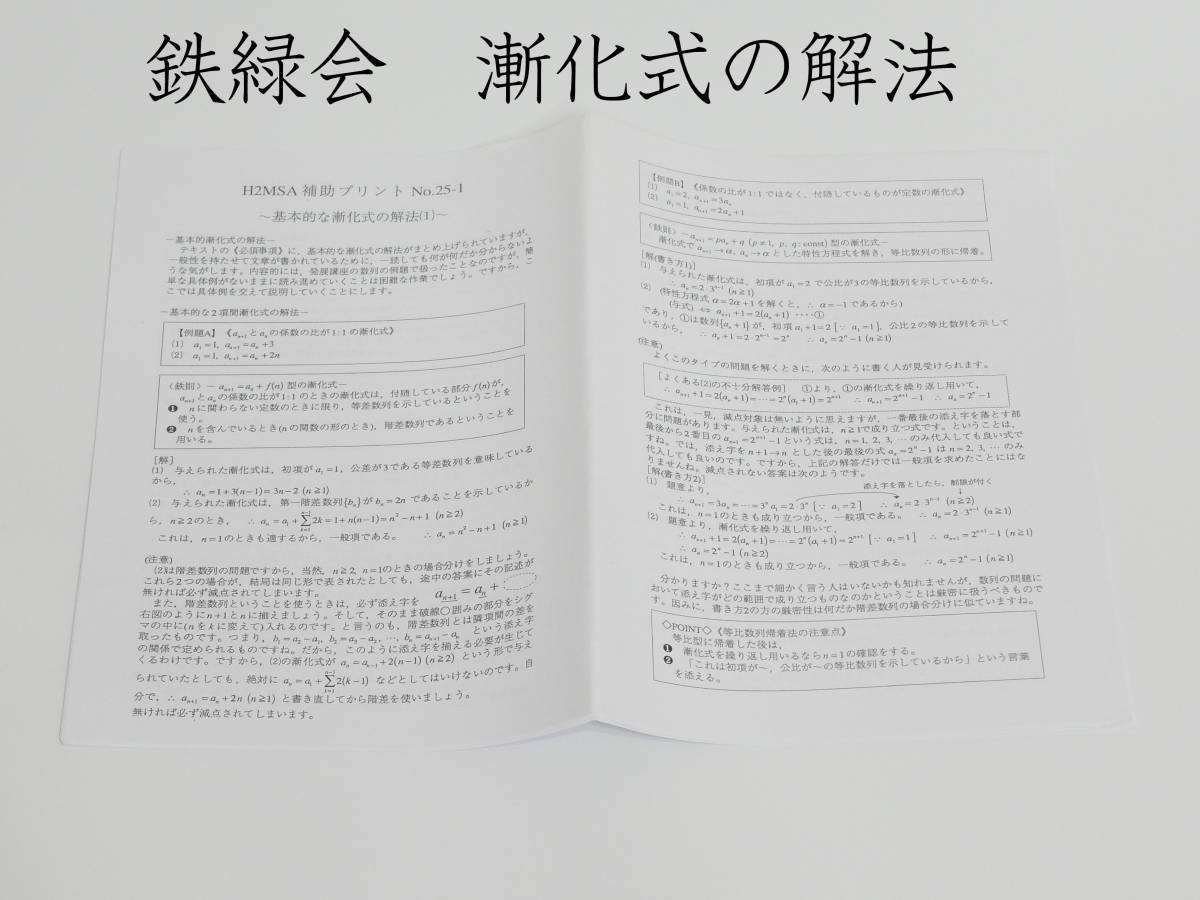 鉄緑会 漸化式の解法
H2MSA 補助プリント No.25-1
～基本的な漸化式の解法(1)～
－基本的漸化式の解法－
テキストの《必須事項》に、基本的な漸化式の解法がまとめ上げられていますが、
一般性を持たせて文章が書かれているために、一読しても何が何だか分からないよ
うな気がします。内容的には、発展講座の数列の例題で扱ったことなのですが、簡
単な具体例がないままに読み進めていくことは困難な作業でしょう。ですから、こ
こでは具体例を交えて説明していくことにします。
－基本的な2項間漸化式の解法－
【例題A】《aₙ₊₁とaₙの係数の比が1:1の漸化式》
(1) a₁=1, aₙ₊₁=aₙ+3
(2) a₁=1, aₙ₊₁=aₙ+2n
〈鉄則〉－aₙ₊₁=aₙ+f(n)型の漸化式－
aₙ₊₁とaₙの係数の比が1:1のときの漸化式は、付随している部分f(n)が、
❶ nに関わらない定数のときに限り、等差数列を示しているということを
使う。
❷ nを含んでいるとき(nの関数の形のとき)、階差数列であるということを
用いる。
[解]
(1) 与えられた漸化式は、初項がa₁=1、公差が3である等差数列を意味している
から、
∴ aₙ=1+3(n-1)=3n-2 (n≧1)
(2) 与えられた漸化式は、第一階差数列{bₙ}がbₙ=2nであることを示しているか
ら、n≧2のとき、 ∴ aₙ=a₁+Σ[k=1→n-1]2k=1+n(n-1)=n²-n+1 (n≧2)
これは、n=1のときも適するから、一般項である。 ∴ aₙ=n²-n+1 (n≧1)
(注意)
(2)は階差数列の問題ですから、当然、n≧2, n=1のときの場合分けをしましょう。
これら2つの場合が、結局は同じ形で表されたとしても、途中の答案にその記述が
無ければ必ず減点されてしまいます。
また、階差数列ということを使うときは、必ず添え字を aₙ₊₁=aₙ+
右図のようにn+1とnに揃えましょう。そして、そのまま破線○囲みの部分をシグ
マの中に(nをkに変えて)入れるのです。と言うのも、階差数列とは隣項間の差を
取ったものです。つまり、b₁=a₂-a₁, b₂=a₃-a₂, …, bₙ=aₙ₊₁-aₙ という添え字
の関係で定められるものですね。だから、このように添え字を揃える必要が生じて
くるわけです。ですから、(2)の漸化式が aₙ=aₙ₋₁+2(n-1) (n≧2) という形で与え
られていたとしても、絶対に aₙ=a₁+Σ[k=1→n-1]2(k-1) などとしてはいけないのです。自
分で、∴ aₙ₊₁=aₙ+2n (n≧1) と書き直してから階差を使いましょう。
無ければ必ず減点されてしまいます。
【例題B】《係数の比が1:1ではなく、付随しているものが定数の漸化式》
(1) a₁=2, aₙ₊₁=3aₙ
(2) a₁=1, aₙ₊₁=2aₙ+1
〈鉄則〉－aₙ₊₁=paₙ+q (p≠1, p, q: const)型の漸化式－
漸化式でaₙ₊₁→α, aₙ→αとした特性方程式を解き、等比数列の形に帰着。
[解(書き方1)]
(1) 与えられた漸化式は、初項がa₁=2で公比が3の等比数列を示しているから、
∴ aₙ=2・3ⁿ⁻¹ (n≧1)
(2) (特性方程式α=2α+1を解くと、∴ α=-1であるから)
(与式) ⇔ aₙ₊₁+1=2(aₙ+1) ‥‥①
であり、①は数列{aₙ+1}が、初項a₁+1=2 [∵ a₁=1]、公比2の等比数列を示して
いるから、 ∴ aₙ+1=2・2ⁿ⁻¹=2ⁿ ∴ aₙ=2ⁿ-1 (n≧1)
(注意)
よくこのタイプの問題を解くときに、次のように書く人が見受けられます。
[よくある(2)の不十分解答例] ①より、①の漸化式を繰り返し用いて、
∴ aₙ₊₁+1=2(aₙ+1)=…=2ⁿ(a₁+1)=2ⁿ⁺¹ ∴ aₙ₊₁=2ⁿ⁺¹-1 ∴ aₙ=2ⁿ-1
これは、一見、減点対象は無いように思えますが、一番最後の添え字を落とす部
分に問題があります。与えられた漸化式は、n≧1で成り立つ式です。ということは、
最後から2番目のaₙ₊₁=2ⁿ⁺¹-1という式は、n=1, 2, 3, …のみ代入しても良い式で
すね。では、添え字をn+1→nとした後の最後の式aₙ=2ⁿ-1はn=2, 3, …のみ
代入しても良いのです。ですから、上記の解答だけでは一般項を求めたことにはな
りませんね。減点されない答案は次のようです。
[解(書き方2)]
添え字を落としたら、制限が付く
(1) 題意より、
∴ aₙ₊₁=3aₙ=…=3ⁿa₁=2・3ⁿ [∵ a₁=2] ∴ aₙ=2・3ⁿ⁻¹ (n≧2)
これは、n=1のときも成り立つから、一般項である。 ∴ aₙ=2・3ⁿ⁻¹ (n≧1)
(2) 題意より、漸化式を繰り返し用いて、
∴ aₙ₊₁+1=2(aₙ+1)=…=2ⁿ(a₁+1)=2ⁿ⁺¹ [∵ a₁=1] ∴ aₙ₊₁=2ⁿ⁺¹-1 (n≧1)
∴ aₙ=2ⁿ-1 (n≧2)
これは、n=1のときも成り立つから、一般項である。 ∴ aₙ=2ⁿ-1 (n≧1)
分かりますか？ここまで細かく言う人はいないかも知れませんが、数列の問題に
おいて添え字がどの範囲で成り立つものなのかということは厳密に扱うべきもので
す。因みに、書き方2の方の厳密性は何だか階差数列の場合分けに似ていますね。
◇POINT◇《等比数列帰着法の注意点》
等比型に帰着した後は、
❶ 漸化式を繰り返し用いるならn=1の確認をする。
❷ 「これは初項が～、公比が～の等比数列を示しているから」という言葉
を添える。